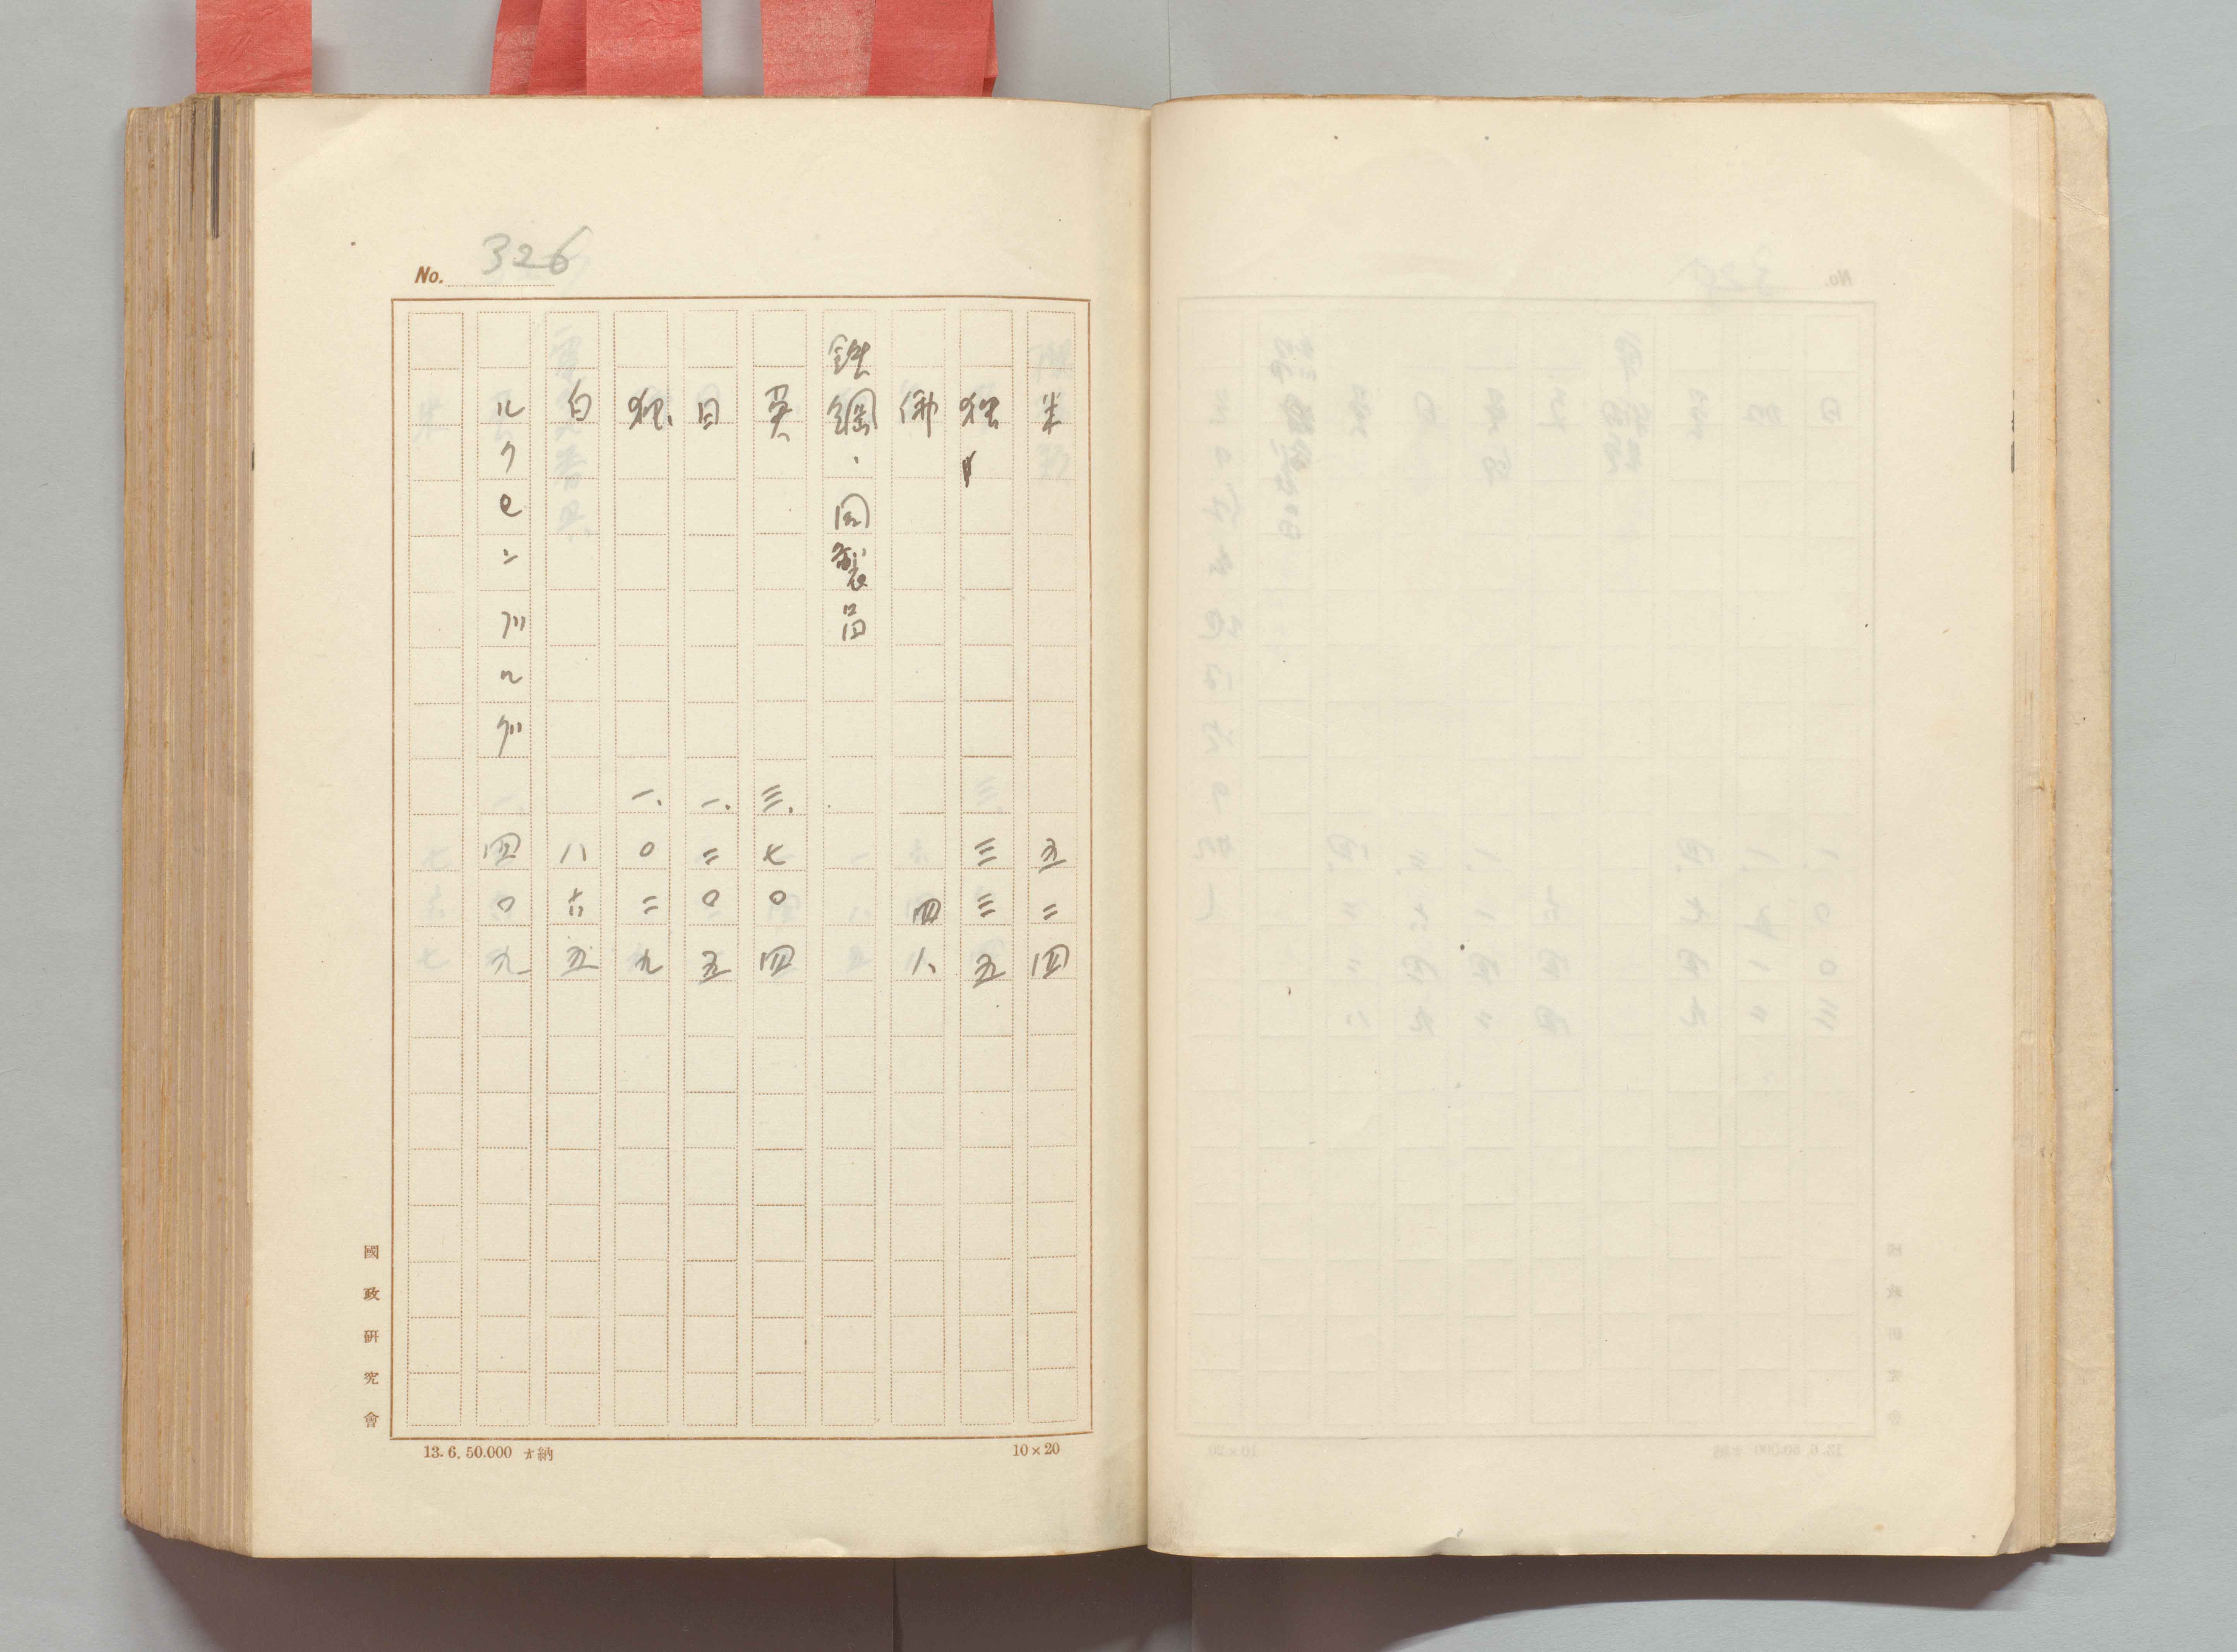 No. 326
米 五二四
独 三三五
佛 四八
鉄鋼・同製品
英 三、七〇四
日 一、二〇五
独、 一、〇二九
白 八六五
ルクセンブルグ 四〇九
國政研究會
13.6.50.000 納
10×20